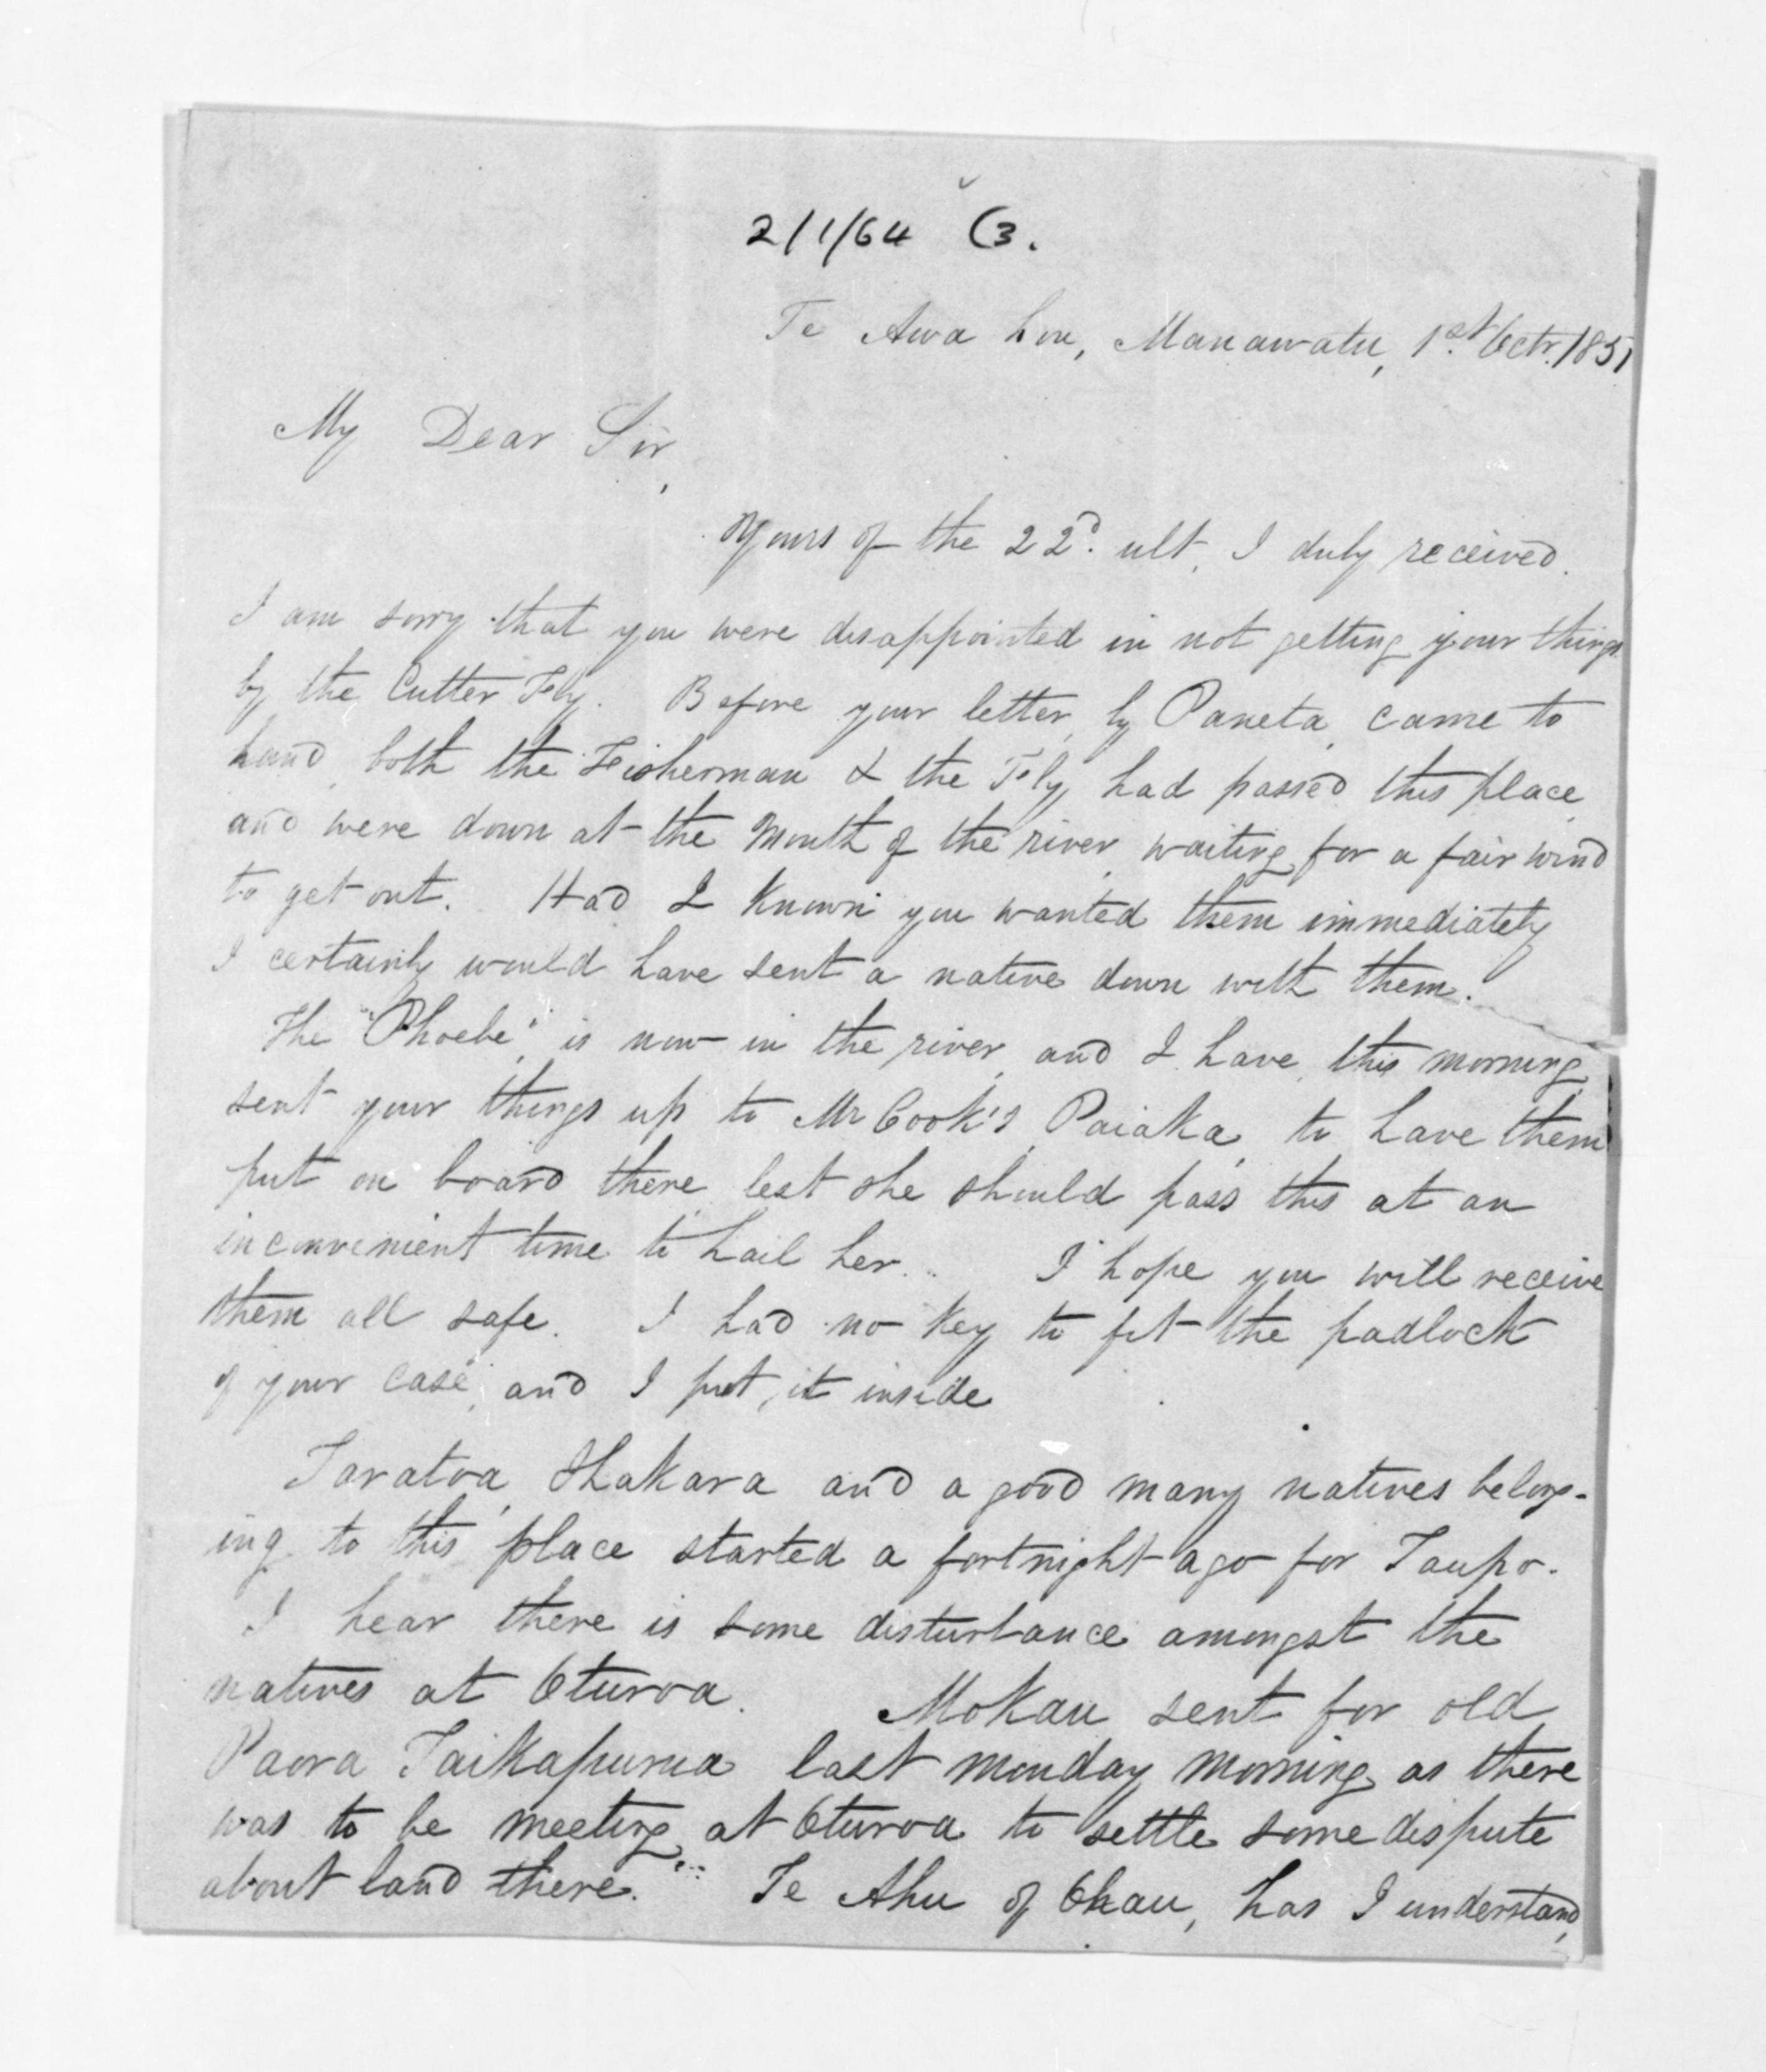 2/1/64 (3.
Te Awa hou, Manawatu, 1st Octr. 1851
My Dear Sir,
Yours of the 22d. ult, I duly received.
I am sorry that you were disappointed in not getting your things
by the Cutter Fly. Before your letter, by Paneta, came to
hand, both the Fisherman & the Fly, had passed this place,
and were down at the mouth of the river, waiting for a fair wind
to get out. Had I known you wanted them immediately
I certainly would have sent a native down with them.
The "Phoebe" is now in the river, and I have, this morning,
sent your things up to Mr Cook's, Paiaka, to have them
put on board there, lest she should pass this at an
inconvenient time to hail her. I hope you will receive
them all safe. I had no key to fit the padlock
of your case, and I put, it inside
Taratoa, Ihakara and a good many natives belong-
ing to this place started a fortnight ago for Taupo.
I hear there is some disturbance amongst the
natives at Oturoa. Mokau sent for old
Paora Taikapurua last monday morning as there
was to be meeting, at Oturoa to settle some dispute
about land there. Te Ahu of Ohau, has I understand,